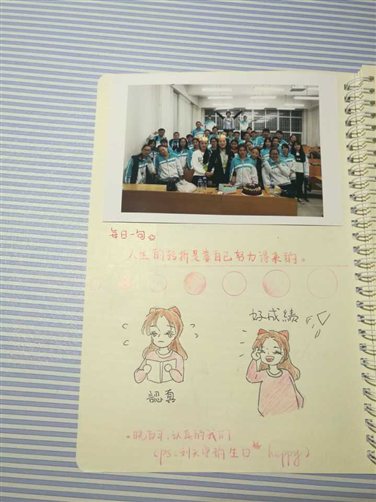 每日一句
人生的轨迹是靠自己努力得来的。
好成績
認真
·晚自习,认真的我们
(ps:刘天宇的生日 happy)